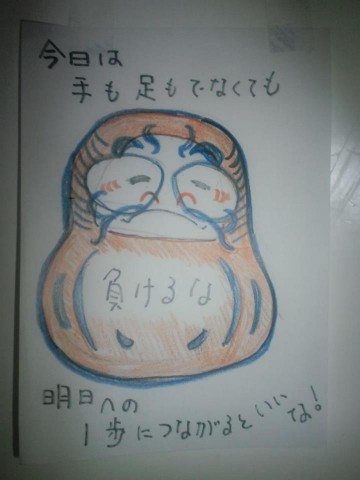 今日は
手も足もでなくても
負けるな
明日への
1歩につながるといいな!